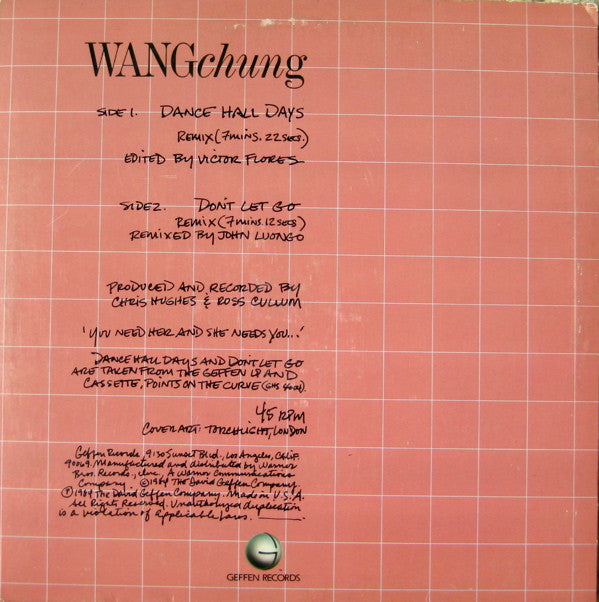 WANGchung
SIDE 1. DANCE HALL DAYS
REMIX (7 MINS. 22 SECS.)
EDITED BY VICTOR FLORES
SIDE 2. DON'T LET GO
REMIX (7 MINS. 12 SECS)
REMIXED BY JOHN LUONGO
PRODUCED AND RECORDED BY
CHRIS HUGHES & ROSS CULLUM
'YOU NEED HER AND SHE NEEDS YOU...'
DANCE HALL DAYS AND DON'T LET GO
ARE TAKEN FROM THE GEFFEN LP AND
CASSETTE, POINTS ON THE CURVE (GHS 4004).
45 RPM
COVER ART: TORCHLIGHT, LONDON
Geffen Records, 9130 Sunset Blvd., Los Angeles, Calif.
90069. Manufactured and distributed by Warner
Bros. Records, Inc., A Warner Communications
Company. ©1984 The David Geffen Company.
℗1984 The David Geffen Company. Made in U.S.A.
All Rights Reserved. Unauthorized duplication
is a violation of applicable laws.
GEFFEN RECORDS